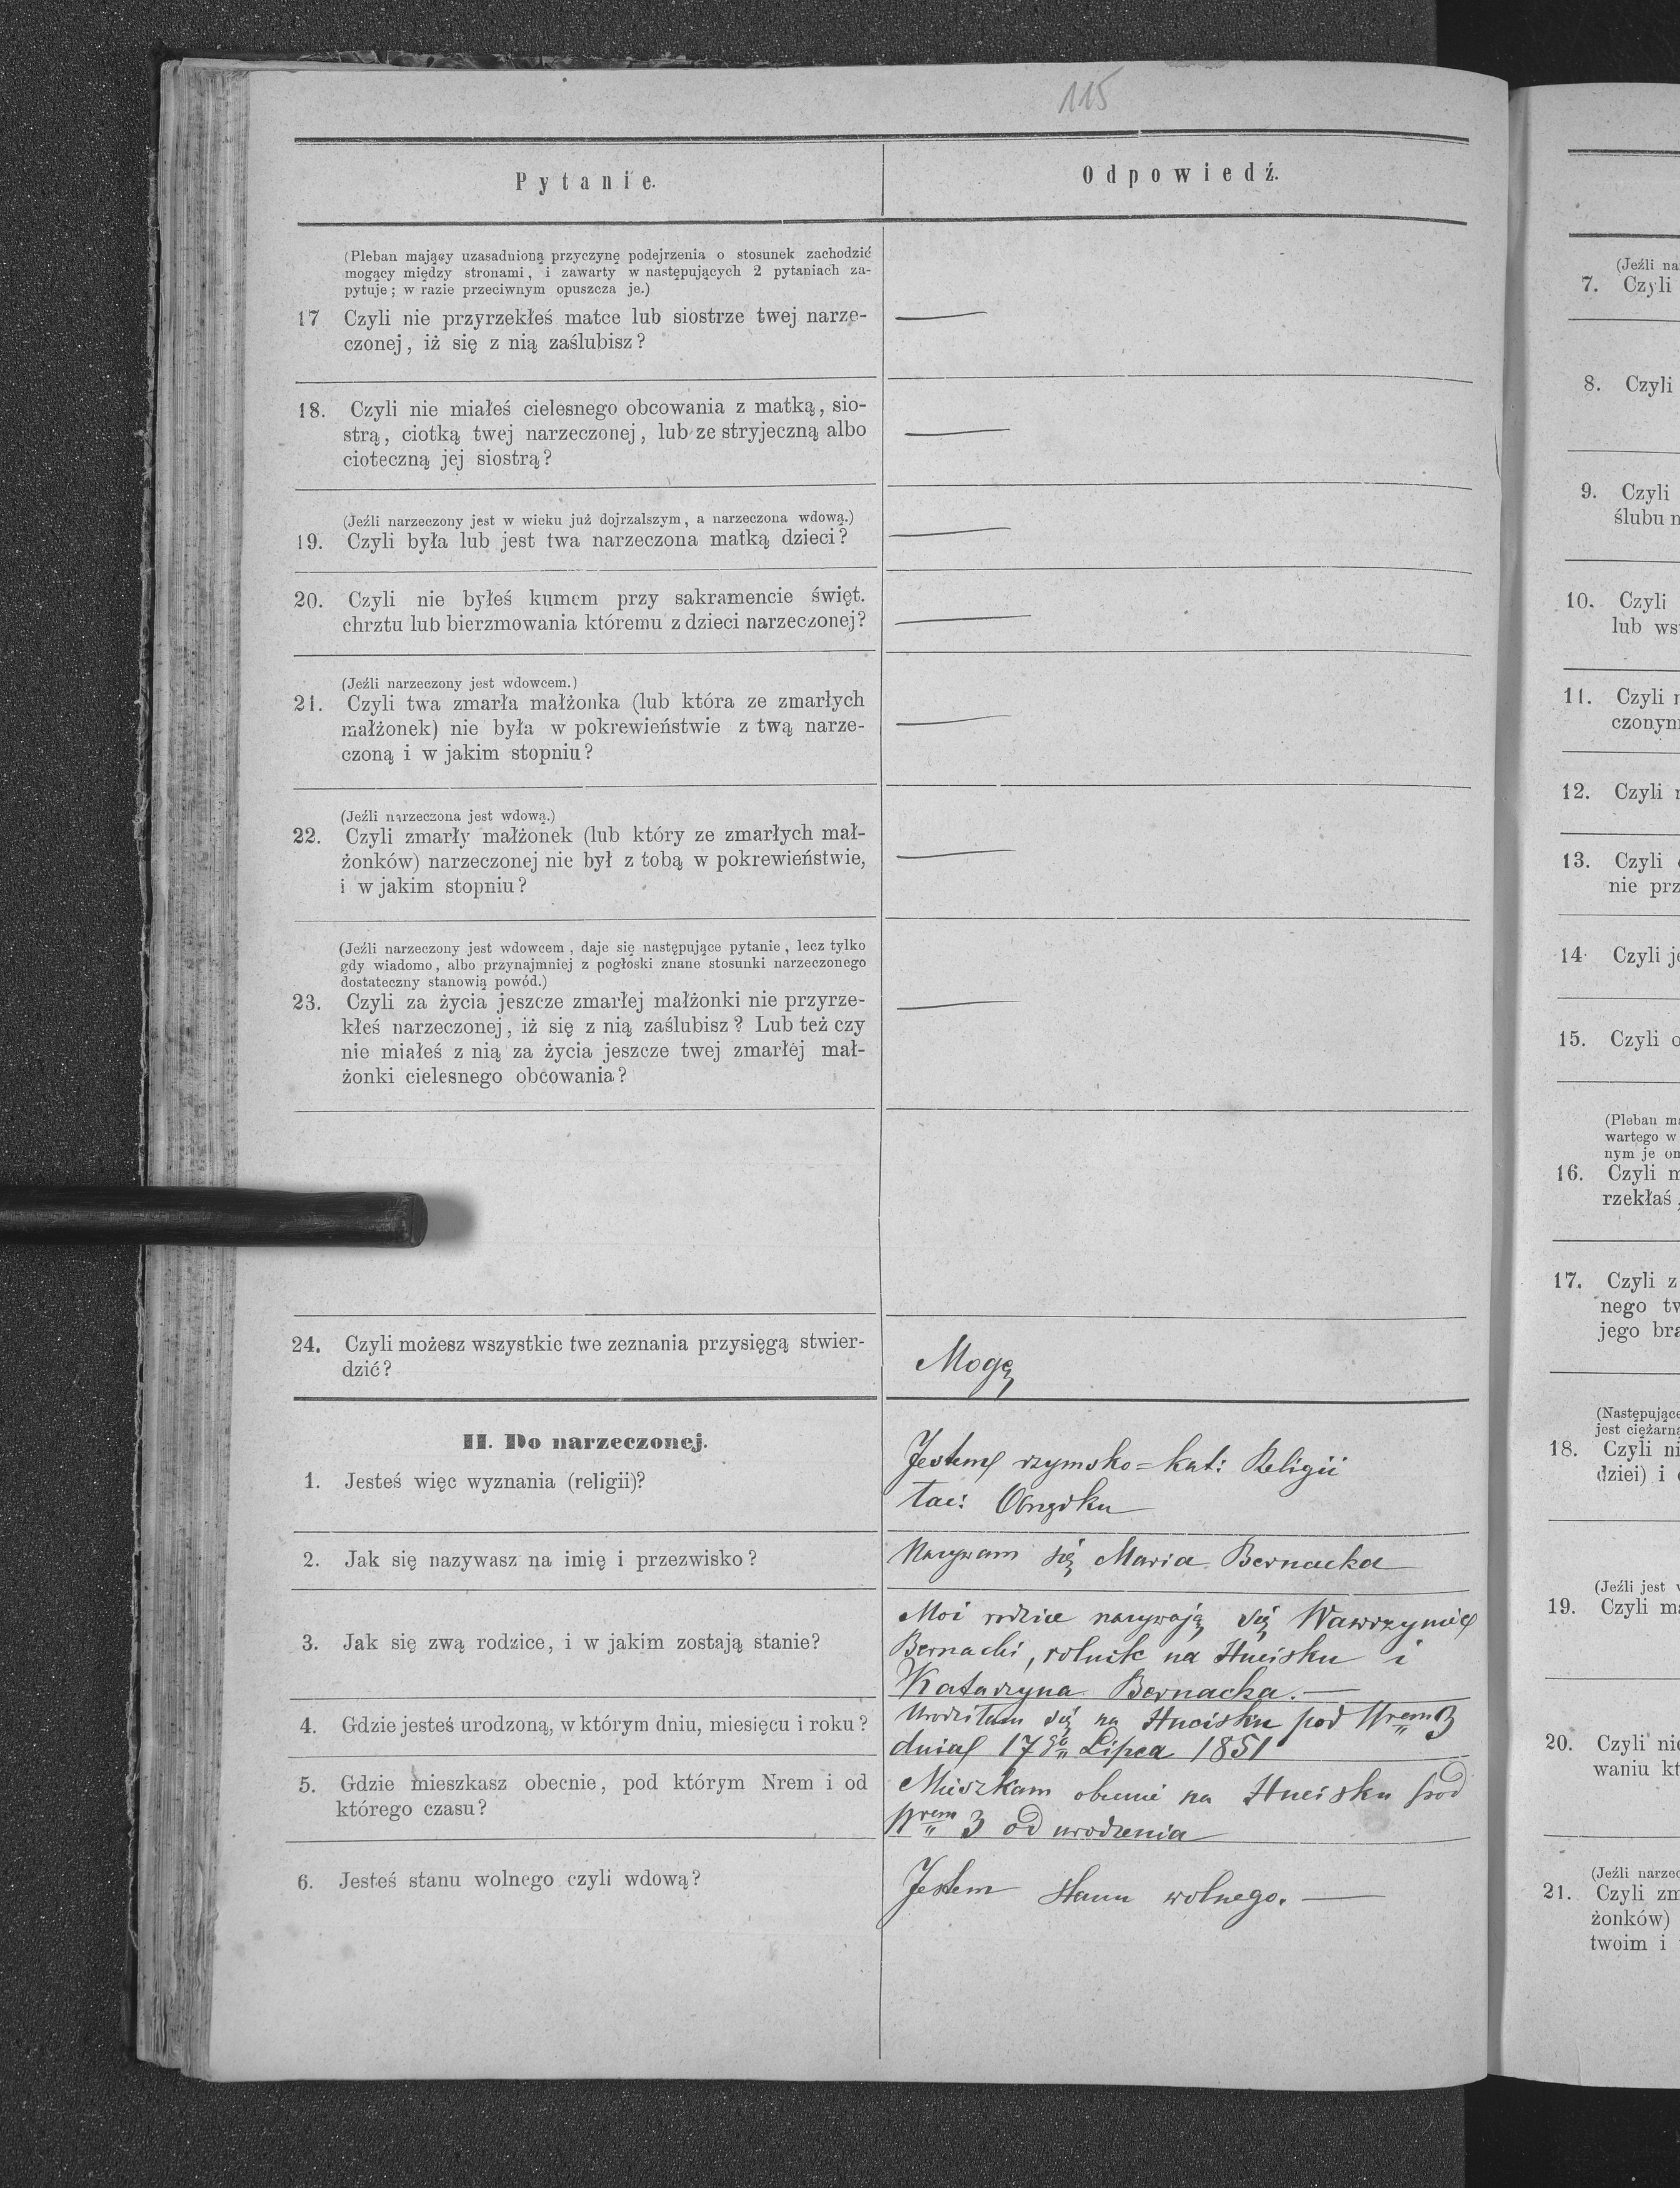 115
Pytanie.
Odpowiedź.
(Pleban mający uzasadnioną przyczynę podejrzenia o stosunek zachodzić
mogący między stronami, i zawarty w następujących 2 pytaniach za-
pytuje; w razie przeciwnym opuszcza je.)
17 Czyli nie przyrzekłeś matce lub siostrze twej narze-
czonej, iż się z nią zaślubisz?
18. Czyli nie miałeś cielesnego obcowania z matką, sio-
strą, ciotką twej narzeczonej, lub ze stryjeczną albo
cioteczną jej siostrą?
(Jeźli narzeczony jest w wieku już dojrzalszym, a narzeczona wdową.)
19. Czyli była lub jest twa narzeczona matką dzieci?
20. Czyli nie byłeś kumem przy sakramencie święt.
chrztu lub bierzmowania któremu z dzieci narzeczonej?
(Jeźli narzeczony jest wdowcem.)
21. Czyli twa zmarła małżonka (lub która ze zmarłych
małżonek) nie była w pokrewieństwie z twą narze-
czoną i w jakim stopniu?
(Jeźli narzeczona jest wdową.)
22. Czyli zmarły małżonek (lub który ze zmarłych mał-
żonków) narzeczonej nie był z tobą w pokrewieństwie,
i w jakim stopniu?
(Jeźli narzeczony jest wdowcem, daje się następujące pytanie, lecz tylko
gdy wiadomo, albo przynajmniej z pogłoski znane stosunki narzeczonego
dostateczny stanowią powód.)
23. Czyli za życia jeszcze zmarłej małżonki nie przyrze-
kłeś narzeczonej, iż się z nią zaślubisz? Lub też czy
nie miałeś z nią za życia jeszcze twej zmarłej mał-
żonki cielesnego obcowania?
24. Czyli możesz wszystkie twe zeznania przysięgą stwier-
dzić?
Mogę
II. Do narzeczonej.
1. Jesteś więc wyznania (religii)?
Jestem rzymsko=kat: Religii
łac: Obrządku
2. Jak się nazywasz na imię i przezwisko?
Nazywam się Maria Bernacka
3. Jak się zwą rodzice, i w jakim zostają stanie?
Moi rodzice nazywają się Wawrzyniec
Bernacki, rolnik na Hucisku i
Katarzyna Bernacka.—
4. Gdzie jesteś urodzoną, w którym dniu, miesięcu i roku?
Urodziłam się na Hucisku pod Nrem 3
dnia 17go Lipca 1851
5. Gdzie mieszkasz obecnie, pod którym Nrem i od
którego czasu?
Mieszkam obecnie na Hucisku pod
Nrem 3 od urodzenia
6. Jesteś stanu wolnego czyli wdową?
Jestem stanu wolnego.—
(Jeźli na
7. Czyli
8. Czyli
9. Czyli
ślubu n
10. Czyli
lub ws
11. Czyli
czonym
12. Czyli
13. Czyli
nie prz
14. Czyli je
15. Czyli o
(Pleban ma
wartego w
nym je om
16. Czyli m
rzekłaś,
17. Czyli z
nego tw
jego bra
(Następujące
jest ciężarną
18. Czyli ni
dziei) i
(Jeźli jest
19. Czyli ma
20. Czyli nie
waniu kt
(Jeźli narzec
21. Czyli zm
żonków)
twoim i